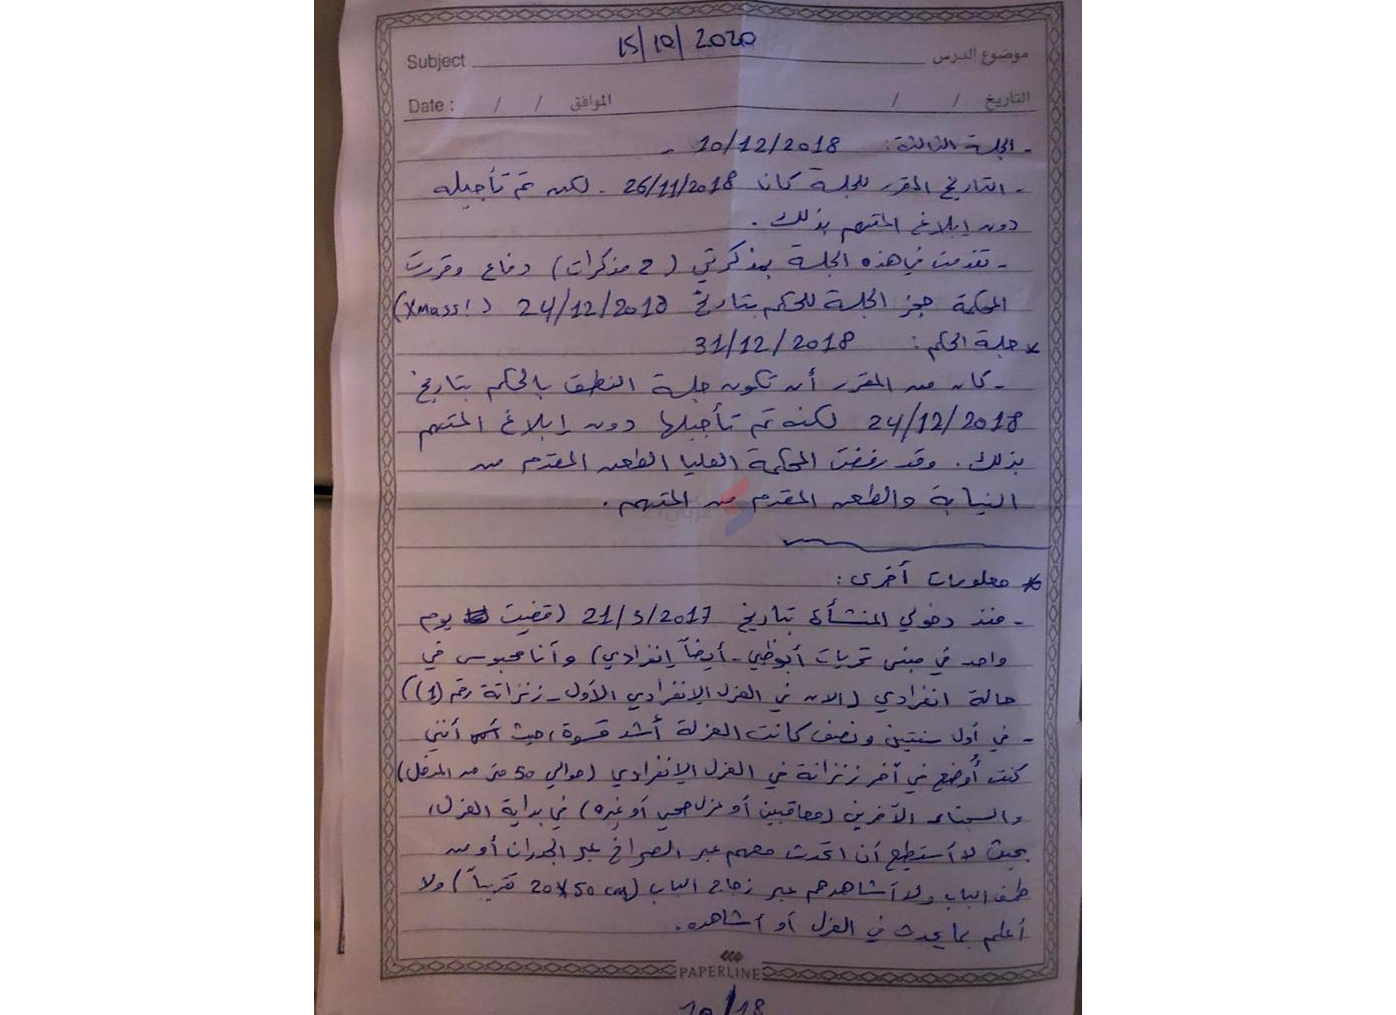 15/10/2020
Subject موضوع الدرس
Date : / / الموافق / / التاريخ
- الجلسة الثالثة: 10/12/2018 -
- التاريخ المقرر للجلسة كان 26/11/2018 - لكن تم تأجيله
دون إبلاغ المتهم بذلك.
- تقدمت في هذه الجلسة بمذكرتي (2 مذكرات) دفاع وقررت
المحكمة حجز الجلسة للحكم بتاريخ 24/12/2018 (Xmass!)
* جلسة الحكم: 31/12/2018
- كان من المقرر أن تكون جلسة النطق بالحكم بتاريخ
24/12/2018 لكنه تم تأجيلها دون إبلاغ المتهم
بذلك. وقد رفضت المحكمة العليا الطعن المقدم من
النيابة والطعن المقدم من المتهم.
عربي21
* معلومات أخرى:
- منذ دخولي المنشأة بتاريخ 21/3/2017 (قضيت يوم
واحد في مبنى تحريات أبوظبي - أيضاً إنفرادي) وأنا محبوس في
حالة انفرادي (الان في العزل الإنفرادي الأول - زنزانة رقم (1))
- في أول سنتين ونصف كانت العزلة أشد قسوة، حيث أنني
كنت أُوضع في آخر زنزانة في العزل الإنفرادي (حوالي 50 متر من المدخل)
والسجناء الآخرين (معاقبين أو عزل صحي أو غيره) في بداية العزل،
بحيث لا أستطيع أن اتحدث معهم عبر الصراخ عبر الجدران أو من
خلف الباب ولا أشاهدهم عبر زجاج الباب (20x50 cm تقريباً) ولا
أعلم بما يحدث في العزل أو أشاهده.
PAPERLINE
10/18